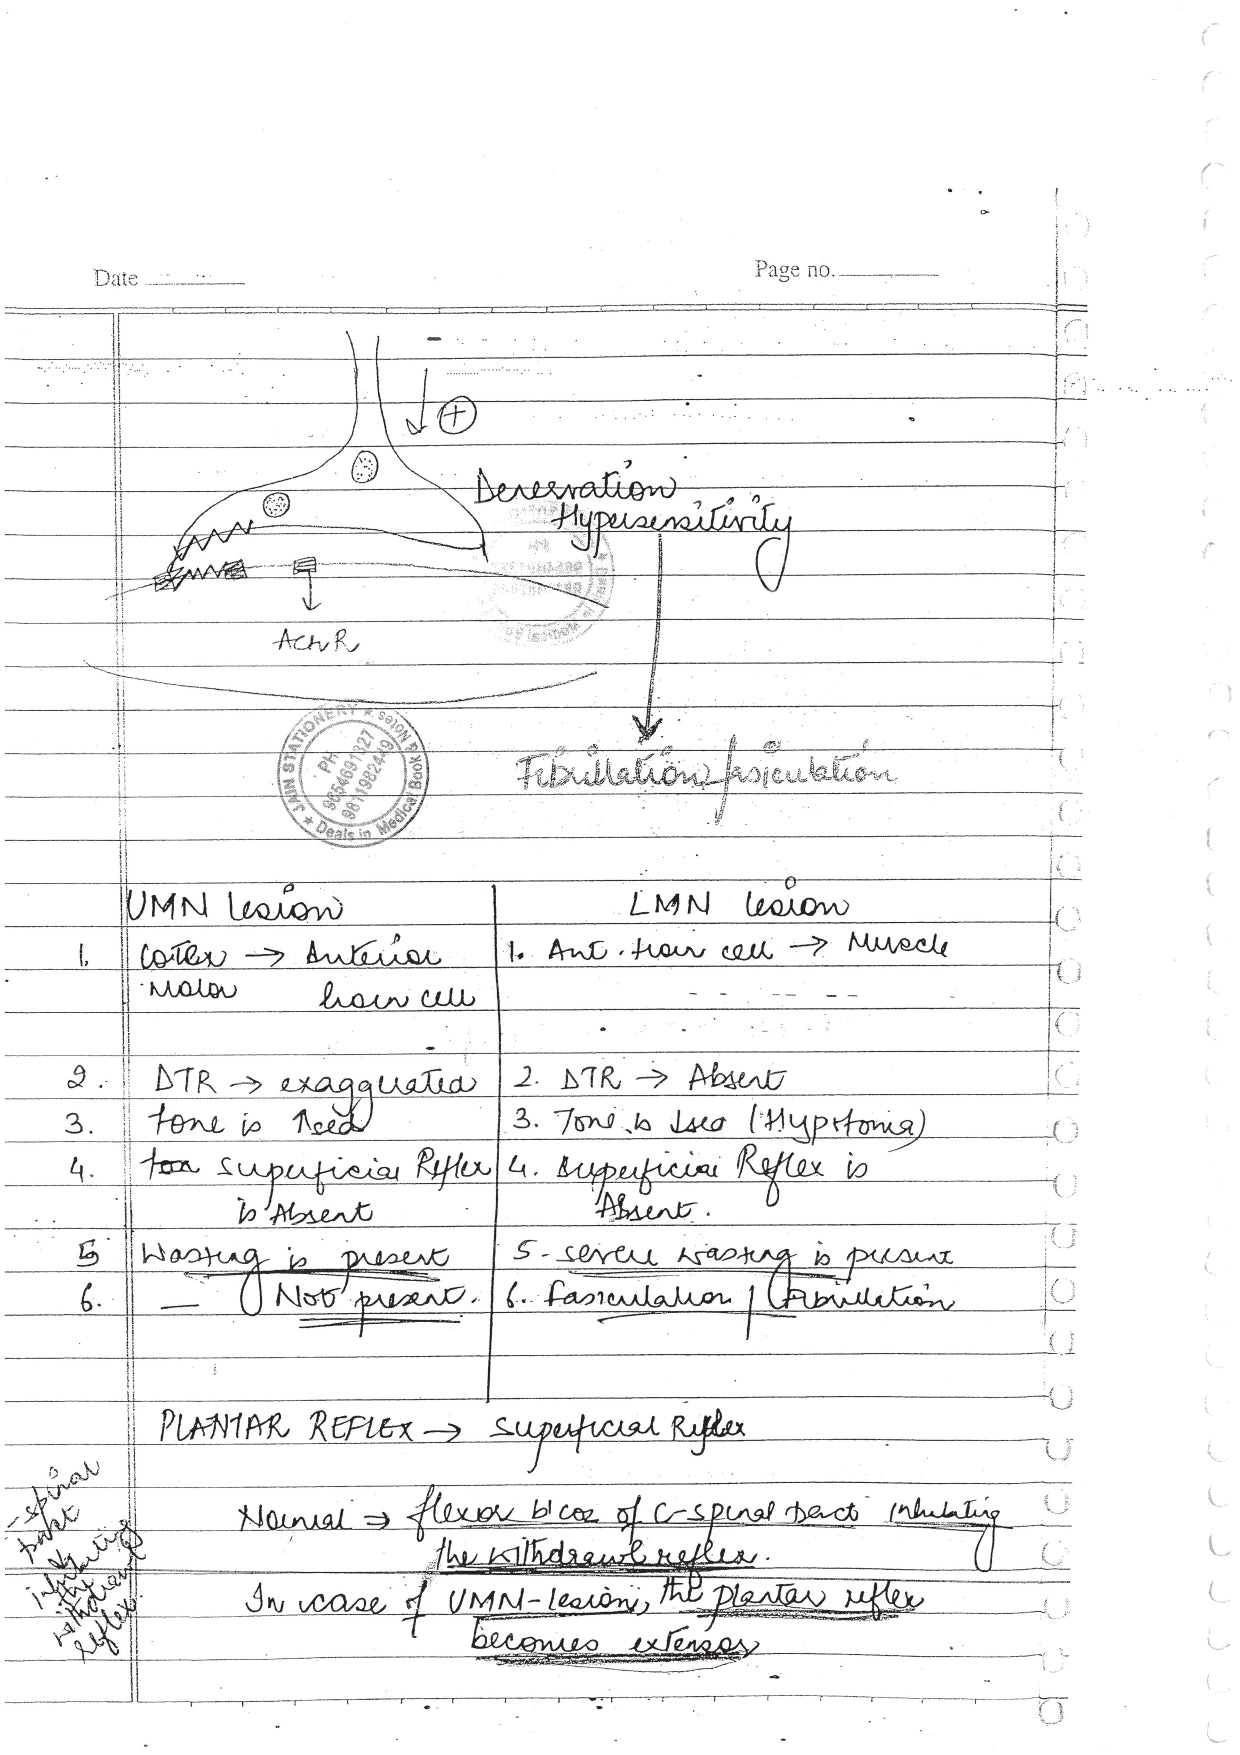 Date
Page no.
+
Denervation
Hypersensitivity
AchR
JAIN STATIONERY ★ Notes ★ Deals in Medical Book
PH
9654691327
9811982449
Fibrillation/fasiculation
UMN lesion
LMN lesion
1. Cortex → Anterior
Motor horn cell
1. Ant. horn cell → Muscle
2. DTR → exagguated
2. DTR → Absent
3. tone is ↑ced
3. Tone is ↓sed (Hypotonia)
4. superficial Reflex
is Absent
4. superficial Reflex is
Absent.
5 Wasting is present
5 - severe wasting is present
6. — Not present.
6. fasiculation / Fibrillation
PLANTAR REFLEX → superficial Reflex
Normal → flexor b'coz of C-spinal tract inhibiting
the withdrawl reflex.
In case of UMN-lesion, the plantar reflex
becomes extensor
- spinal
tract
inhibiting
the
withdrawl
reflex.